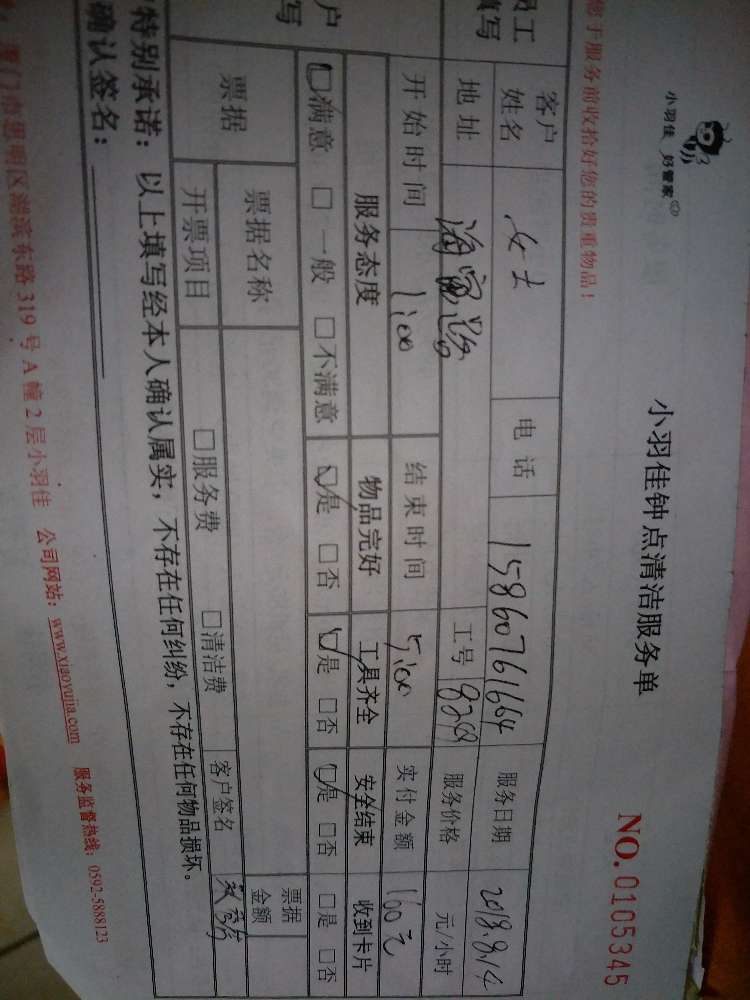 小羽佳 好管家
小羽佳钟点清洁服务单
NO.0105345
您于服务前收拾好您的贵重物品！
员工
填写
客户
姓名 女士 电话 15860761664 服务日期 2018.8.14
地址 工号 服务价格 元/小时
开始时间 1:00 结束时间 5:00 实付金额 160元
户
写
服务态度 物品完好 工具齐全 安全结束 收到卡片
□满意 □一般 □不满意 □是 □否 □是 □否 □是 □否 □是 □否
票据 票据名称 票据金额
开票项目 □服务费 □清洁费 客户签名
特别承诺：以上填写经本人确认属实，不存在任何纠纷，不存在任何物品损坏。
确认签名：
厦门市思明区湖滨东路319号A幢2层小羽佳 公司网站：www.xiaoyujia.com 服务监督热线：0592-5888123